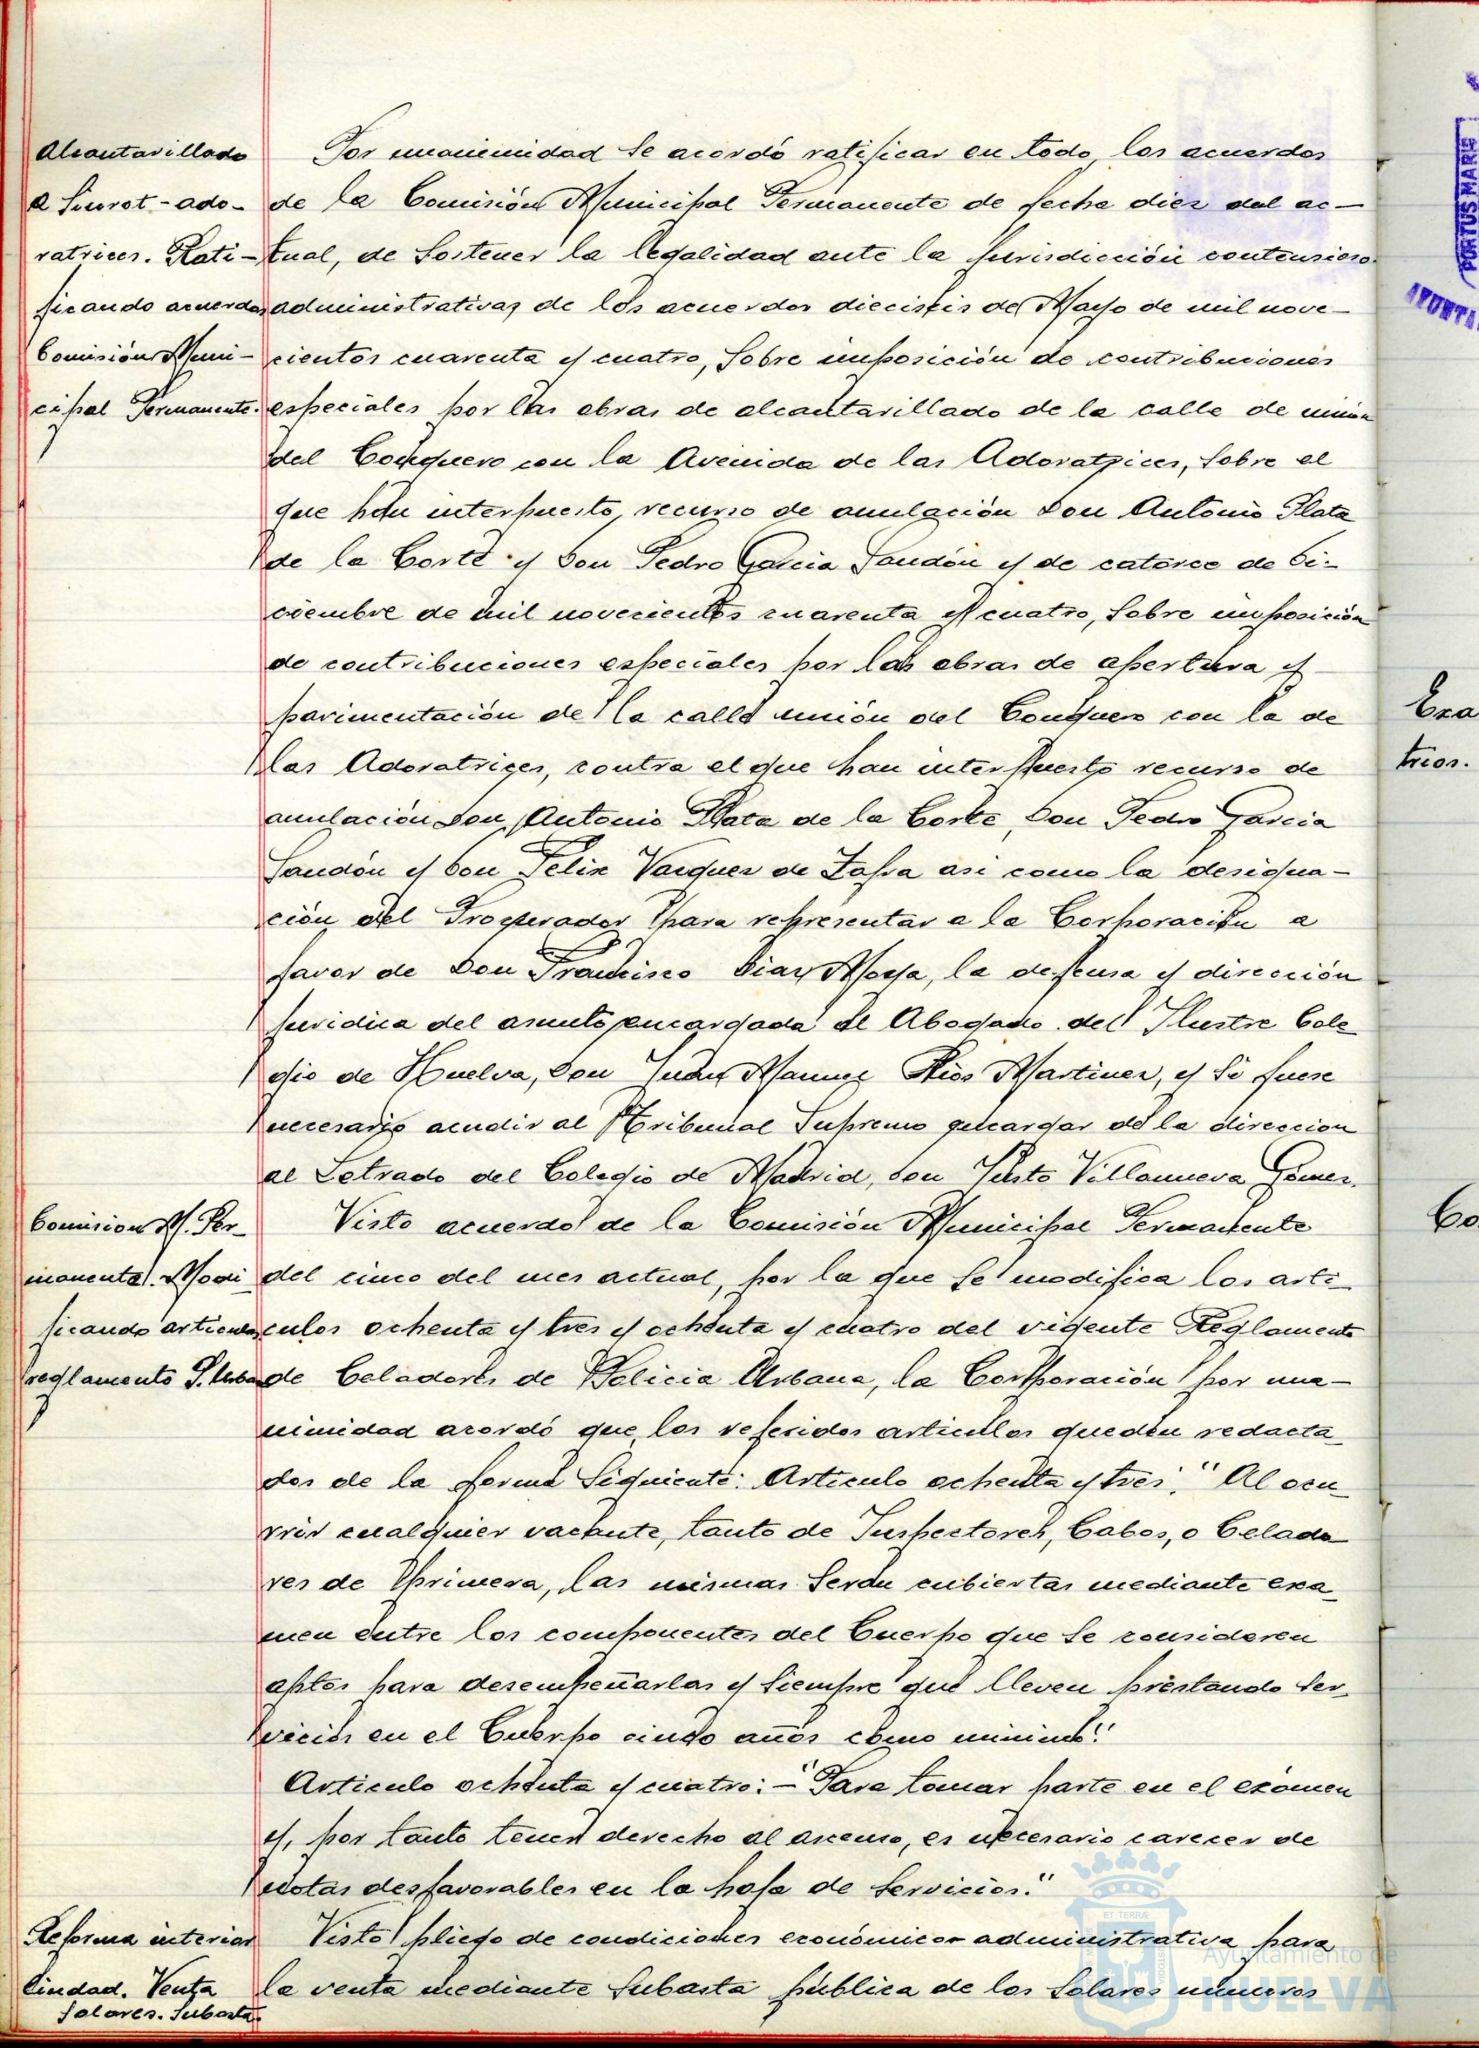 Alcantarillado
a Siurot-ado-
ratrices. Rati-
ficando acuerdos
Comisión Muni-
cipal Permanente.
Por unanimidad se acordó ratificar en todo, los acuerdos
de la Comisión Municipal Permanente de fecha diez del ac-
tual, de sostener la legalidad ante la jurisdicción contencioso
administrativas de los acuerdos dieciseis de Mayo de mil nove-
cientos cuarenta y cuatro, sobre imposición de contribuciones
especiales por las obras de alcantarillado de la calle de unión
del Conquero con la Avenida de las Adoratrices, sobre el
que han interpuesto recurso de anulación Don Antonio Plata
de la Corte y Don Pedro Garcia Jaudón y de catorce de Di-
ciembre de mil novecientos cuarenta y cuatro, sobre imposición
de contribuciones especiales por las obras de apertura y
pavimentación de la calle unión del Conquero con la de
las Adoratrices, contra el que han interpuesto recurso de
anulación Don Antonio Plata de la Corte, Don Pedro Garcia
Jaudón y Don Felix Vazquez de Zafra asi como la designa-
ción del Procurador para representar a la Corporación a
favor de Don Francisco Diaz Moya, la defensa y dirección
juridica del asunto encargada al Abogado del Ilustre Cole
gio de Huelva, Don Juan Manuel Rios Martinez, y si fuese
necesario acudir al Tribunal Supremo encargar de la direccion
al Letrado del Colegio de Madrid, Don Justo Villanueva Gómez.
Comision M. Per-
manente. Modi
ficando articulos
reglamento P. Urbana
Visto acuerdo de la Comisión Municipal Permanente
del cinco del mes actual, por la que se modifica los arti-
culos ochenta y tres y ochenta y cuatro del vigente Reglamento
de Celadores de Policia Urbana, la Corporación por una-
nimidad acordó que los referidos articulos queden redacta-
dos de la forma siguiente: Articulo ochenta y tres: "Al ocu-
rrir cualquier vacante, tanto de Inspectores, Cabos, o Celado
res de Primera, las mismas serán cubiertas mediante exa-
men entre los componentes del Cuerpo que se consideren
aptos para desempeñarlas y siempre que lleven prestando ser-
vicios en el Cuerpo cinco años como minimo."
Articulo ochenta y cuatro:- "Para tomar parte en el exámen
y, por tanto tener derecho al ascenso, es necesario carecer de
notas desfavorables en la hoja de servicios."
Reforma interior
Ciudad. Venta
Solares. Subasta.
Visto pliego de condiciones económico-administrativa para
la venta mediante subasta pública de los solares números
PORTUS MARIS
AYUNTA
Exa
trios.
Co
ET TERRAE
Ayuntamiento de
HUELVA